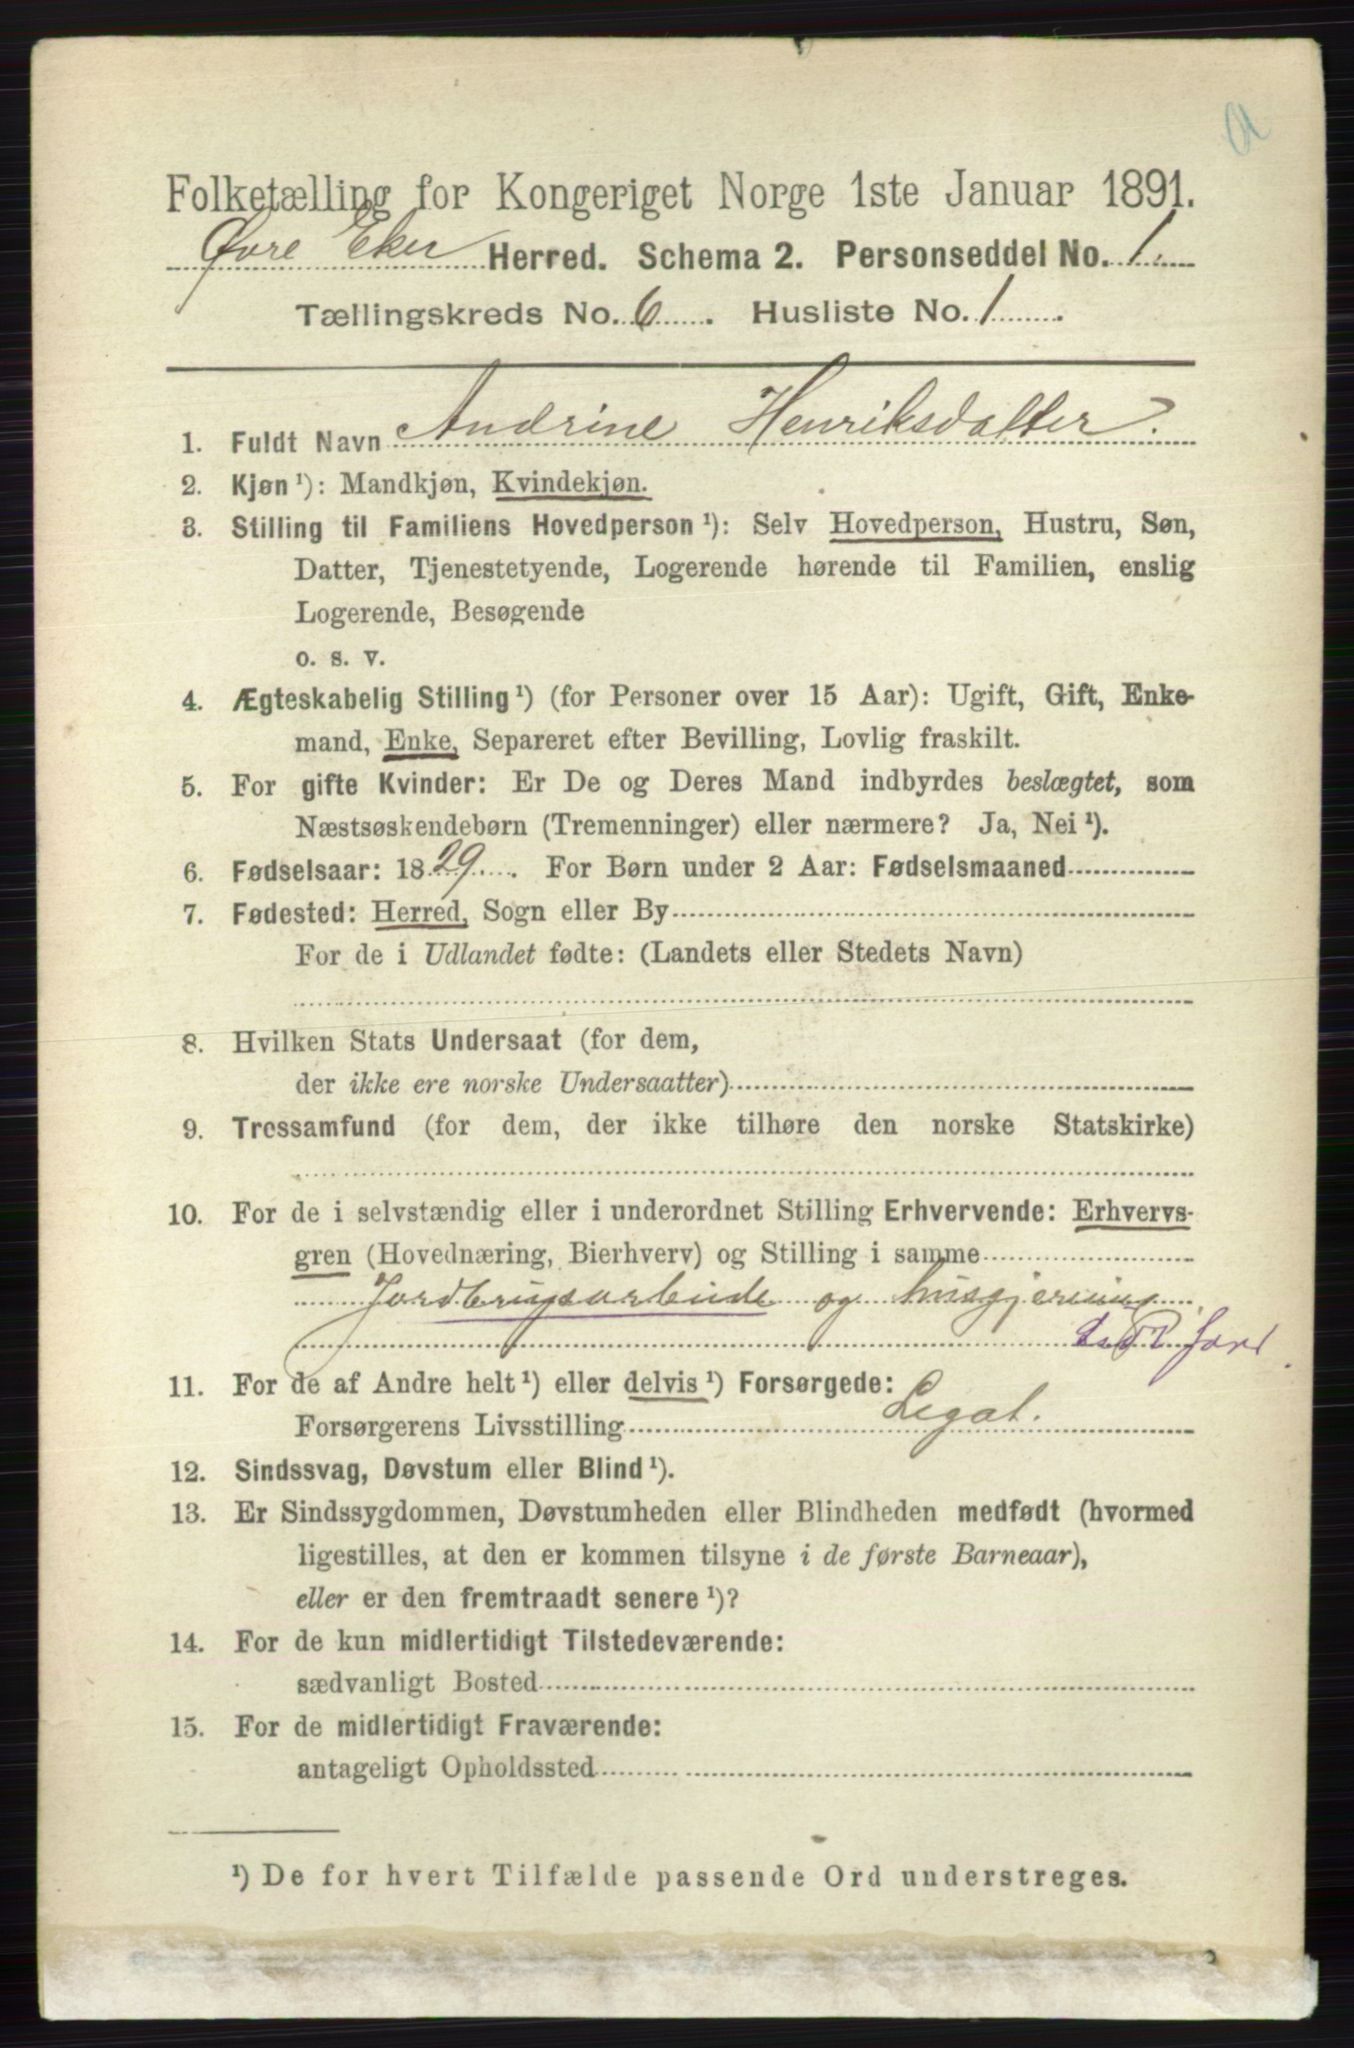 a
Folketælling for Kongeriget Norge 1ste Januar 1891.
Øvre Eker Herred. Schema 2. Personseddel No. 1.
Tællingskreds No. 6. Husliste No. 1.
1. Fuldt Navn Andrine Henriksdatter.
2. Kjøn ¹): Mandkjøn, Kvindekjøn.
3. Stilling til Familiens Hovedperson ¹): Selv Hovedperson, Hustru, Søn,
Datter, Tjenestetyende, Logerende hørende til Familien, enslig
Logerende, Besøgende
o. s. v.
4. Ægteskabelig Stilling ¹) (for Personer over 15 Aar): Ugift, Gift, Enke-
mand, Enke, Separeret efter Bevilling, Lovlig fraskilt.
5. For gifte Kvinder: Er De og Deres Mand indbyrdes beslægtet, som
Næstsøskendebørn (Tremenninger) eller nærmere? Ja, Nei ¹).
6. Fødselsaar: 1829. For Børn under 2 Aar: Fødselsmaaned
7. Fødested: Herred, Sogn eller By
For de i Udlandet fødte: (Landets eller Stedets Navn)
8. Hvilken Stats Undersaat (for dem,
der ikke ere norske Undersaatter)
9. Trossamfund (for dem, der ikke tilhøre den norske Statskirke)
10. For de i selvstændig eller i underordnet Stilling Erhvervende: Erhvervs-
gren (Hovednæring, Bierhverv) og Stilling i samme
Jordbrugsarbeide og husgjerning
Jord
11. For de af Andre helt ¹) eller delvis ¹) Forsørgede:
Forsørgerens Livsstilling Legat.
12. Sindssvag, Døvstum eller Blind ¹).
13. Er Sindssygdommen, Døvstumheden eller Blindheden medfødt (hvormed
ligestilles, at den er kommen tilsyne i de første Barneaar),
eller er den fremtraadt senere ¹)?
14. For de kun midlertidigt Tilstedeværende:
sædvanligt Bosted
15. For de midlertidigt Fraværende:
antageligt Opholdssted
¹) De for hvert Tilfælde passende Ord understreges.